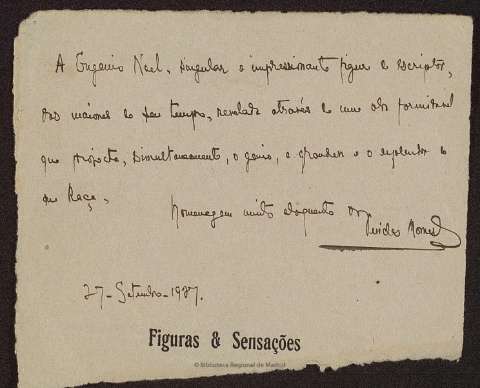 A Eugenio Noel, singular e impressionante figura de escriptor,
dos maiores do seu tempo, revelada através de uma obra formidavel
que projecta, simultaneamente, o genio, a grandeza e o esplendor de
uma Raça.
Homenagem muito
27-Setembro-1927.
Figuras & Sensações
© Biblioteca Regional de Madrid